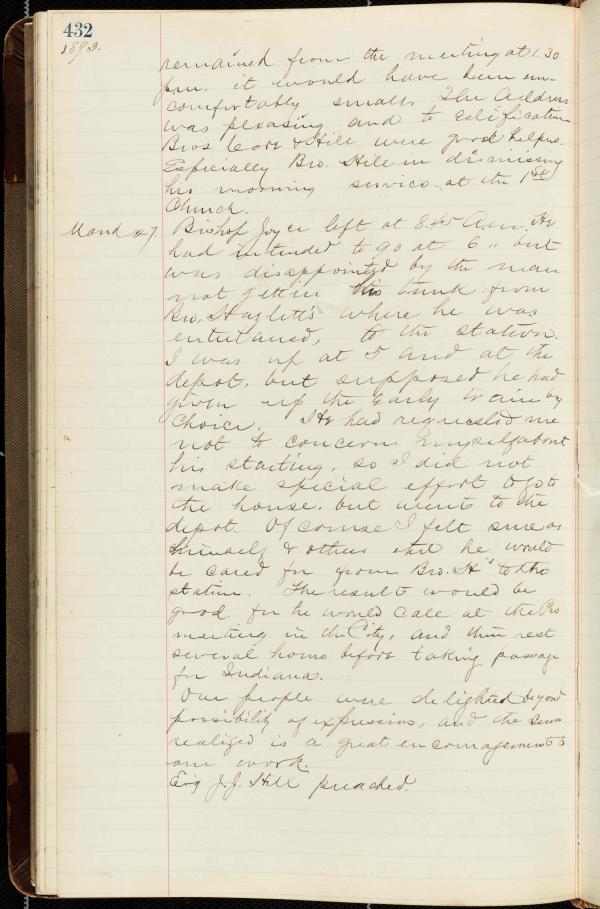 432
1893.
remained from the meeting at 1.30
p.m. it would have been un-
comfortably small. The Address
was pleasing and to edification
Bros Core & Hill were good helpers.
Especially Bro. Hill in dismissing
his morning service at the 1st
Church.
March 27. Bishop Joyce left at 8.45 A.m. He
had intended to go at 6 " but
was disappointed by the man
not gettin his trunk from
Bro. Hazlett's where he was
entertaned, to the station.
I was up at 5 and at the
depot, but supposed he had
given up the early train by
choice. He had requested me
not to concern myself about
his starting, so I did not
make special effort to go to
the house, but went to the
depot. Of course I felt sure as
himself & others that he would
be cared for from Bro. H" to the
station. The result would be
good for he would call at the Prs
meeting in the City, and then rest
several hours before taking passage
for Indiana.
Our people were delighted beyond
possibility of expression, and the sum
realized is a great encouragement to
our work.
Eve'g J.J. Hill preached.